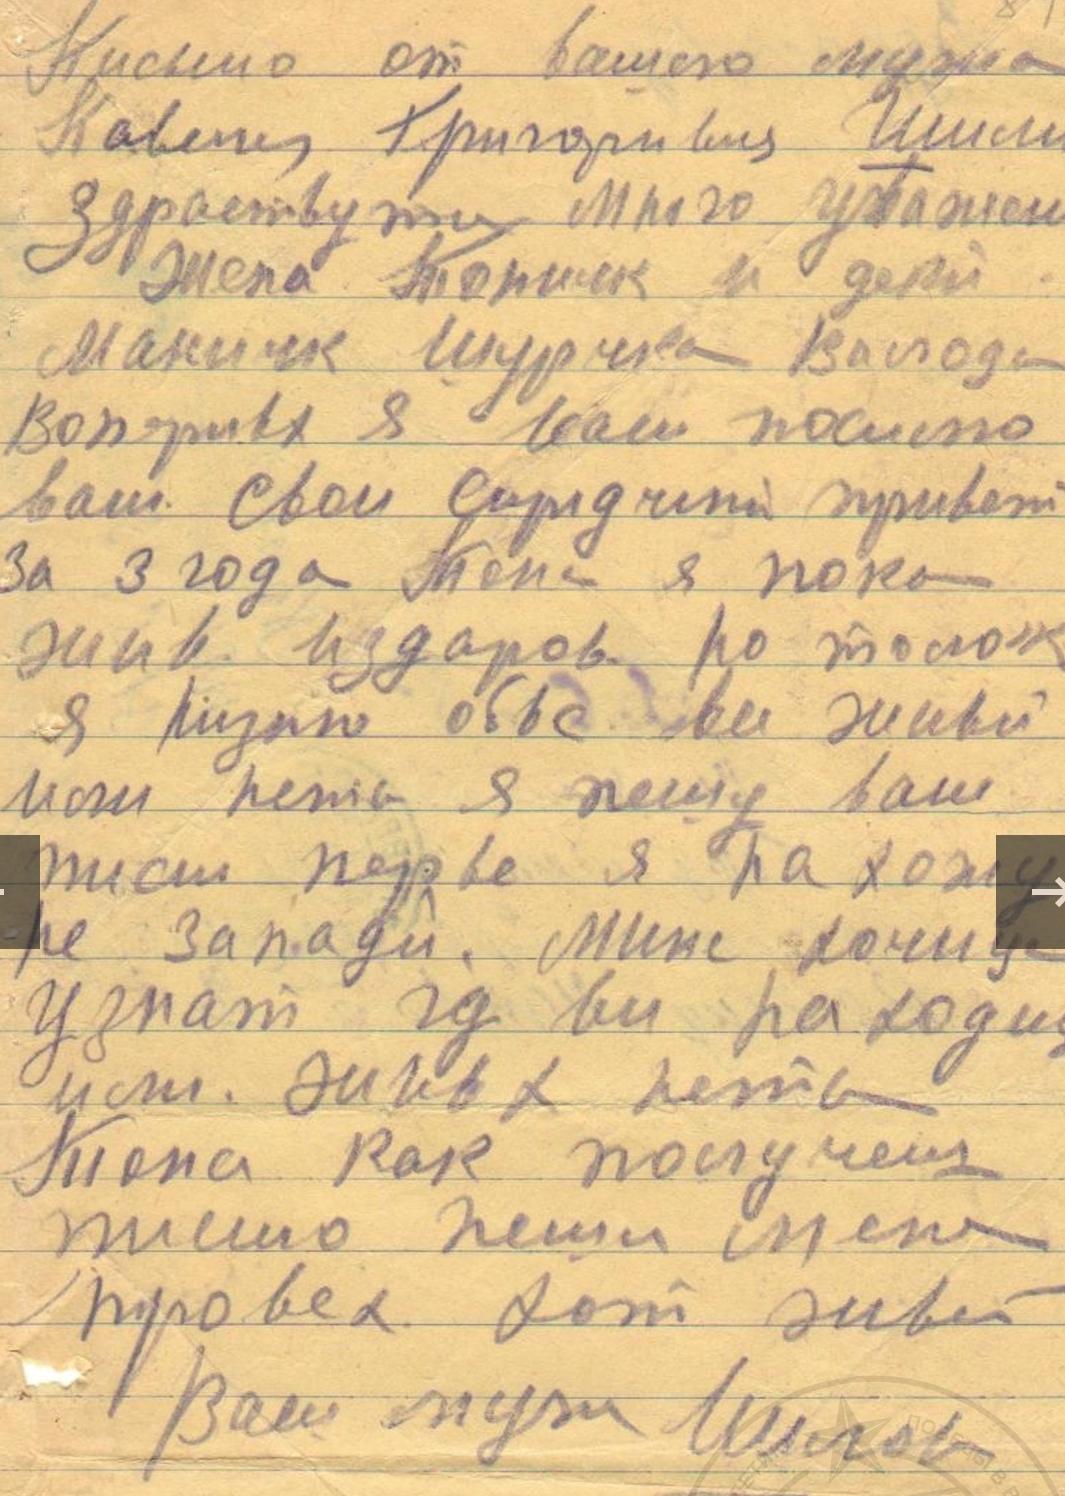 Писмо от вашего мужа
Григоривич Шили
Здраствути Много уважаи
Жена Тоничк и дети
Маничк Шурчка Валода
Вопервых я вам посилаю
вам свои сиридчни привет
За 3 года Тоня я пока
жив издаров но толок
я низнаю обвс ви живи
или нета я пешу вам
писм перве я на хожу
не западй. Мине хочиц
Узнат гд ви на ходиц
или. живых нета
Тона как получеш
писмо пеши мена
провех хот живи
Ваш муж Шилов